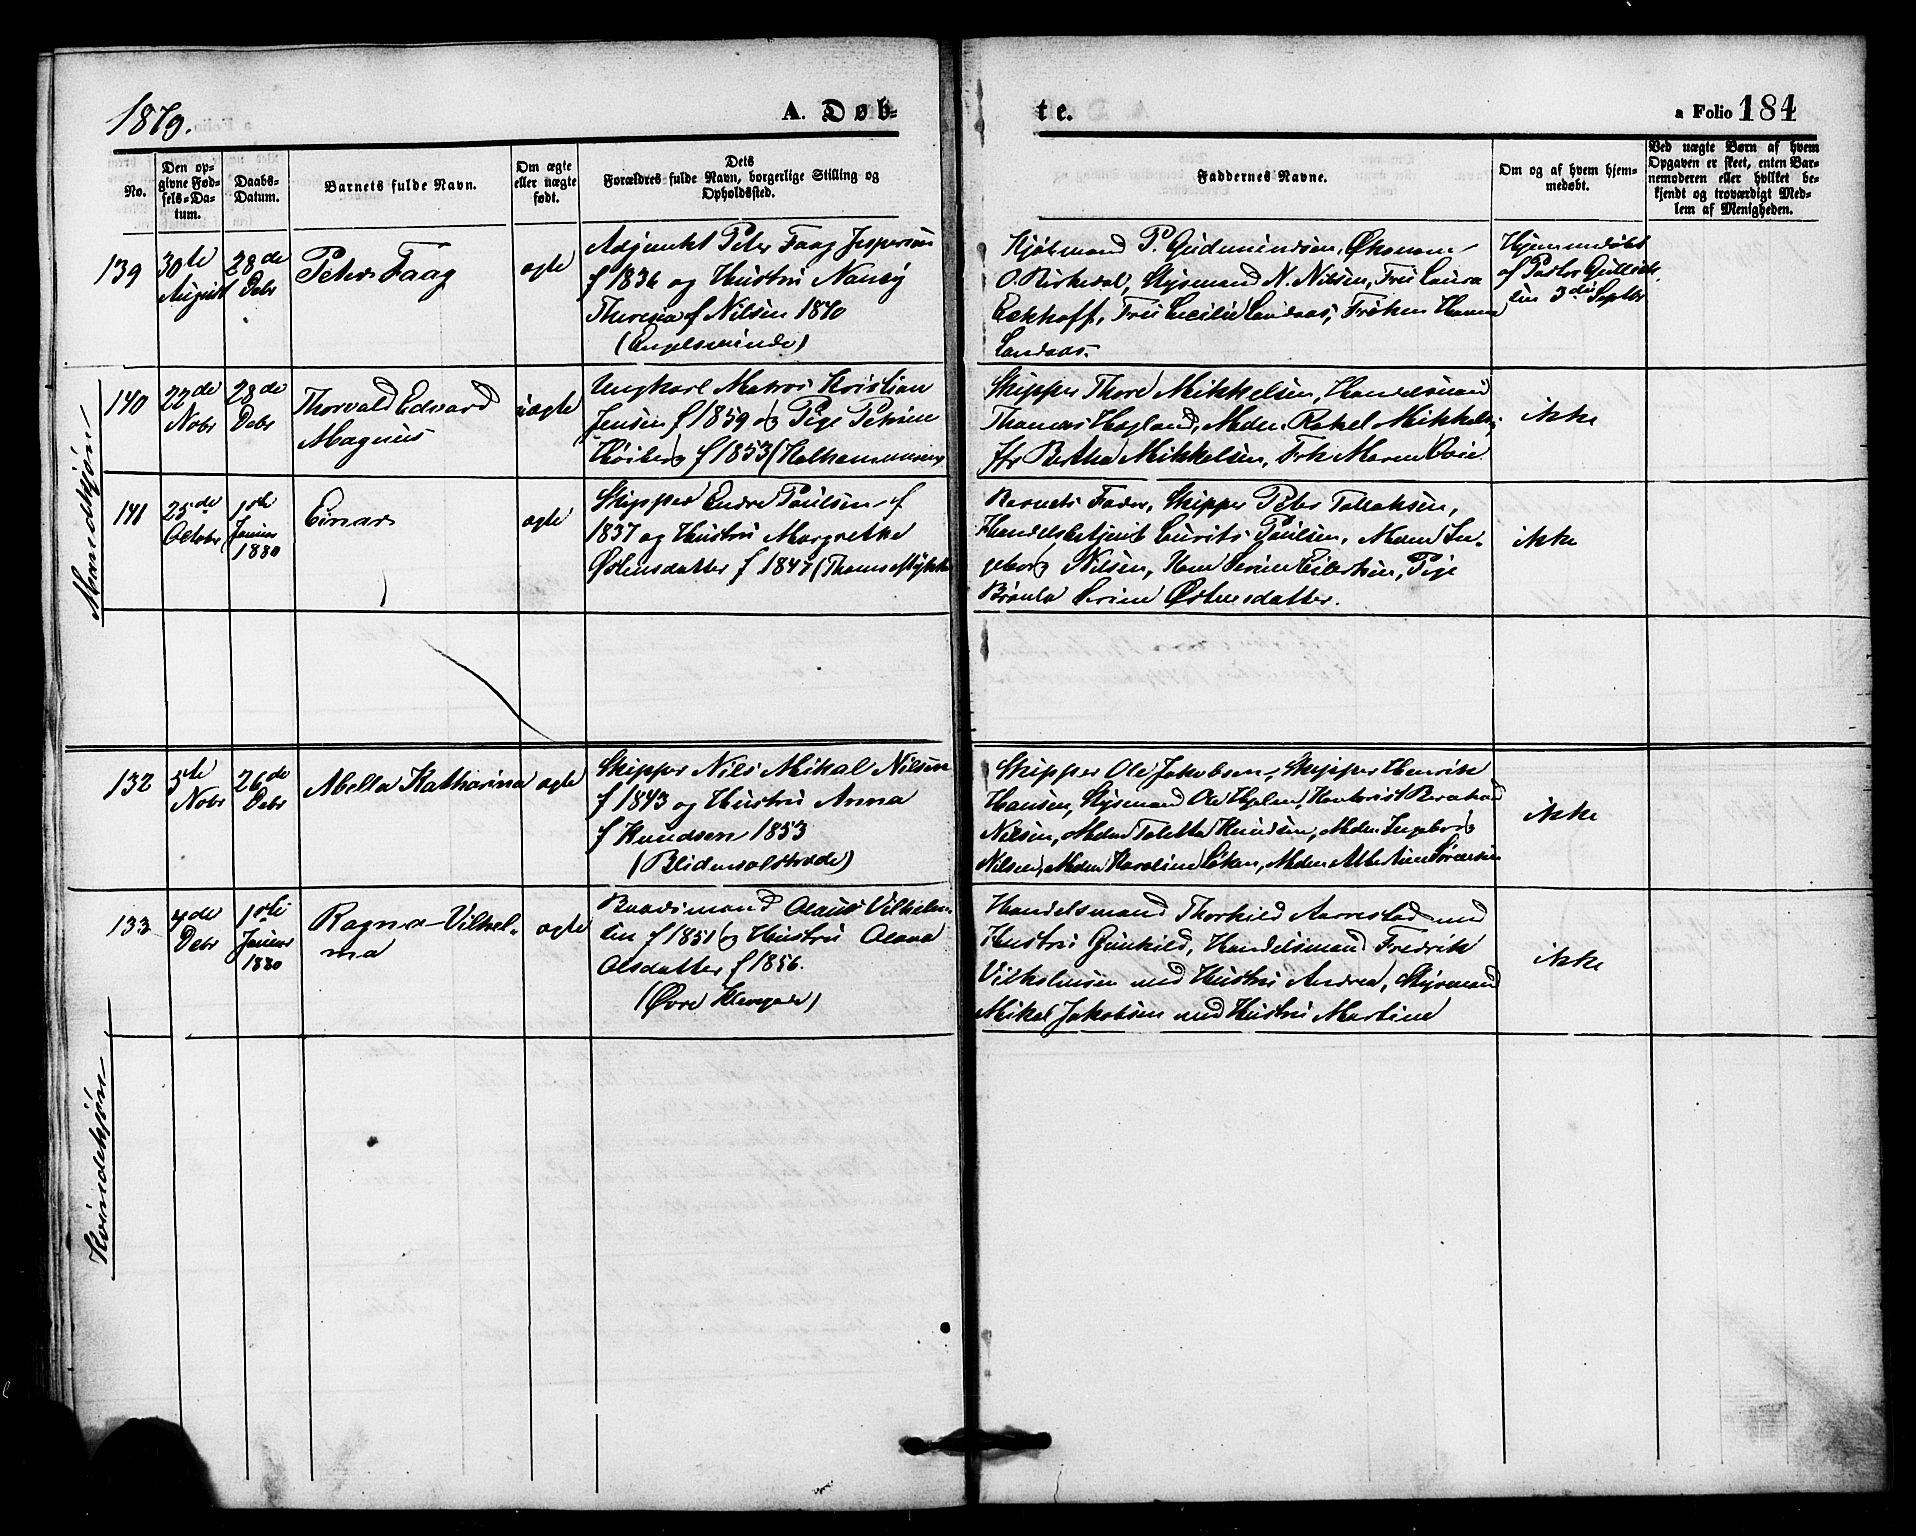 1879.
A. Døb-
te.
a Folio 184
No.
Den op-
givne Fød-
sels-Da-
tum.
Daabs-
Datum.
Barnets fulde Navn.
Om ægte
eller uægte
født.
Dets
Forældres fulde Navn, borgerlige Stilling og
Opholdssted.
Faddernes Navne.
Om og af hvem hjem-
medøbt.
Ved uægte Børn af hvem
Opgaven er skeet, enten Bar-
nemoderen eller hvilket be-
kjendt og troværdigt Med-
lem af Menigheden.
Mandkjøn
139
30te
August
28de
Debr
Peter Faag
ægte
Adjunkt Peter Faag Jespersen
f 1836 og Hustru Nancy
Theresa f Nilsen 1870
(Engelsminde)
Kjøbmand P. Gudmundsen, Økonom
O. Birkedal, Styrmand N. Nilsen, Fru Laura
Eckhoff, Fru Cecilie Landaas, Frøken Hanna
Landaas.
Hjemmedøbt
af Pastor
den 3die Septbr
140
22de
Nobr
28de
Debr
Thorvald Edvard
Magnus
uægte
Ungkarl Matros Kristian
Jensen f 1859 og Pige Petrine
Høiberg f 1853
Skipper Thore Mikkelsen, Handelsmand
Thomas Hagland, Mdm. Rakel Mikkels,
Jfr Bertha Mikkelsen, Frk Maren
ikke
141
25de
Octobr
1ste
Januar
1880
Einar
ægte
Skipper Endre Paulsen f
1837 og Hustru Margrethe
Østensdatter f 1847
Barnets Fader, Skipper Peter Tollaksen,
Handelsbetjent Laurits Paulsen, Mdm In-
geborg Nilsen, Serine Eilertsen, Pige
Serine Østensdatter.
ikke
Kvindekjøn
132
5te
Nobr
26de
Debr
Abella Katharina
ægte
Skipper Nils Mikal Nilsen
f 1843 og Hustru Anna
f Knudsen 1853
(Blidensolstræde)
Skipper Ole Jakobsen, Skipper Henrik
Hansen, Styrmand Ole Kontorist
Nilsen, Mdm Toletta Knudsen, Mdm Ingeborg
Nilsen, Mdm Karoline Mdm Albertine Sørensen
ikke
133
7de
Debr
1ste
Januar
1880
Ragna Vilhel-
ma
ægte
Baadsmand Olaus Vilhelm-
sen f 1851 og Hustru Olava
Olsdatter f 1856.
(Øvre Klevgade)
Handelsmand Thorkild Aarrestad med
Hustru Gunhild, Handelsmand Fredrik
Vilhelmsen med Hustru Andrea, Styrmand
Mikal Jakobsen med Hustru Martine
ikke